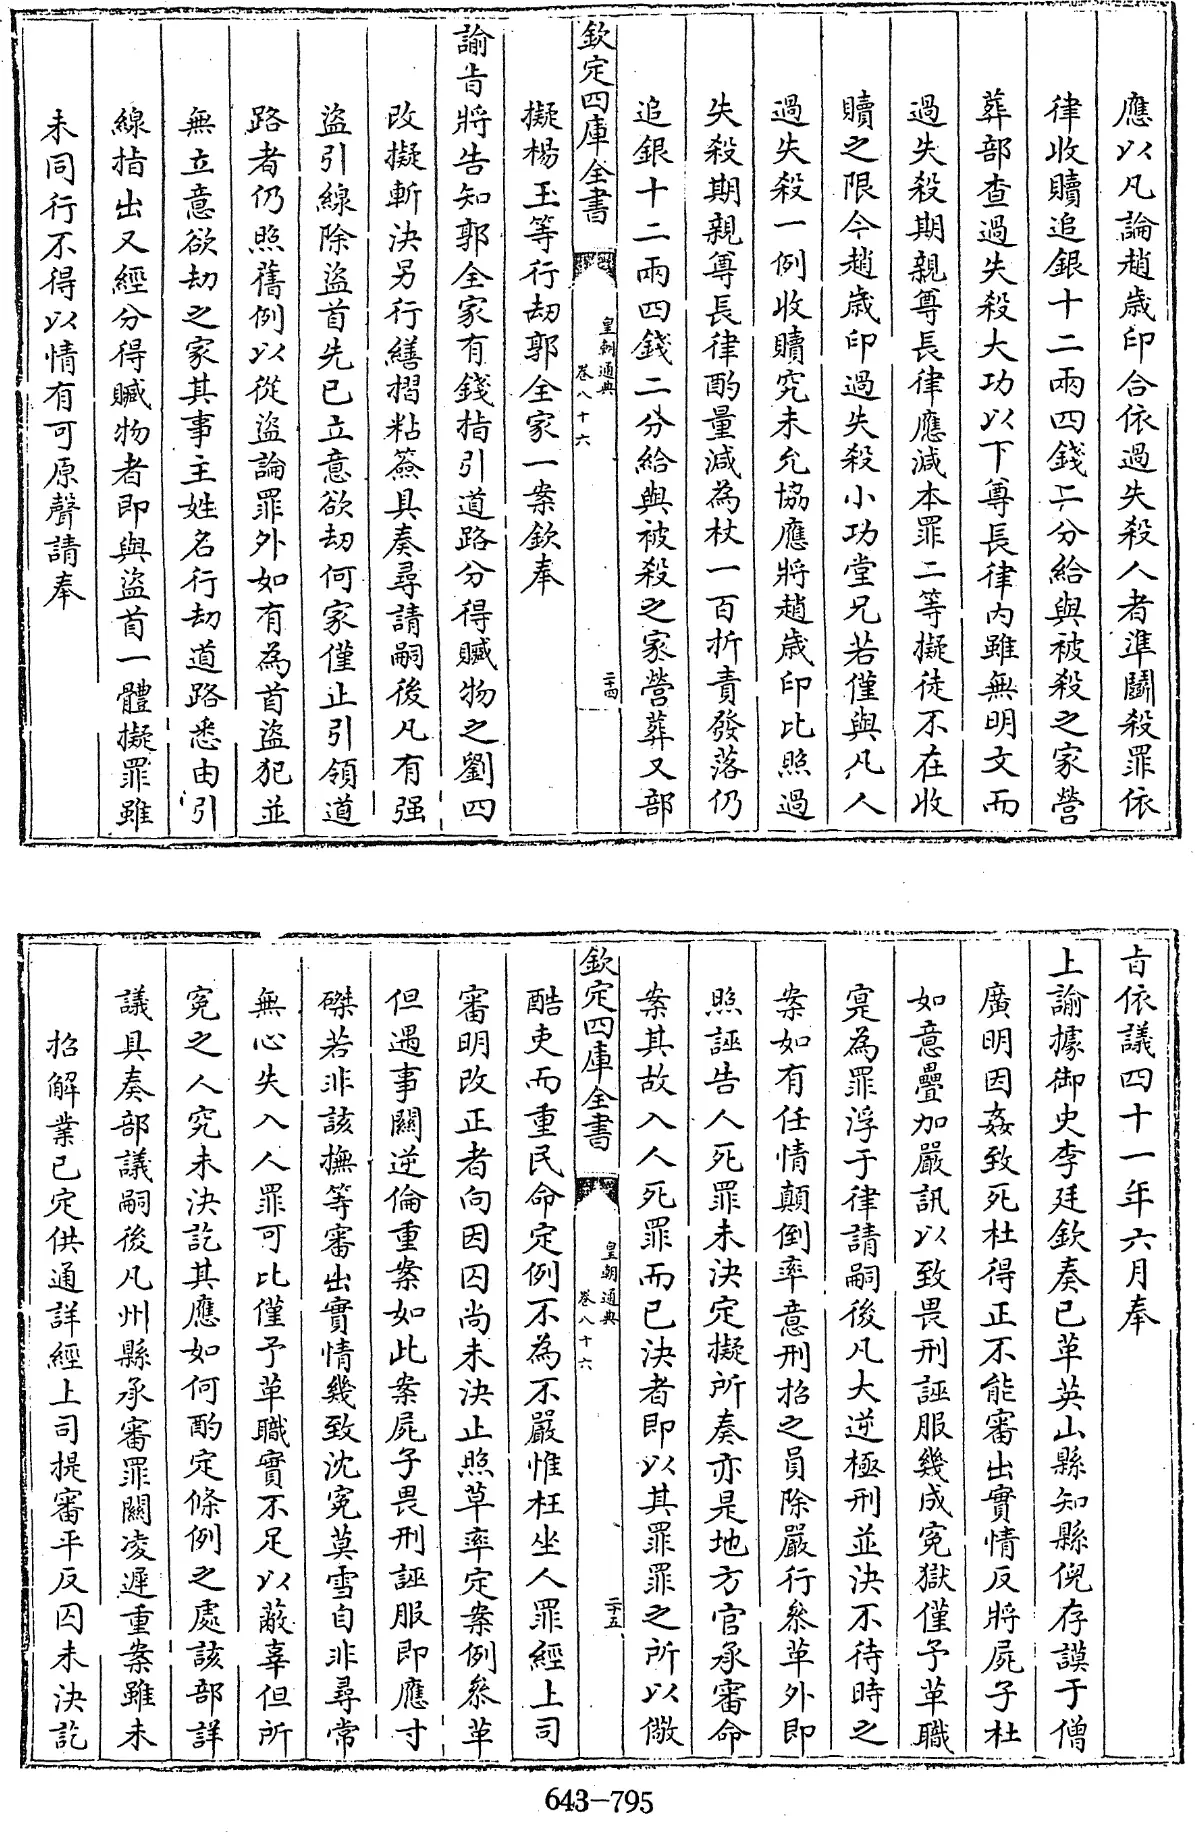 應以凡論趙歲印合依過失殺人者準鬬殺罪依
律收贖追銀十二兩四錢二分給與被殺之家營
葬部查過失殺大功以下尊長律內雖無明文而
過失殺期親尊長律應減本罪二等擬徒不在收
贖之限今趙歲印過失殺小功堂兄若僅與凡人
過失殺一例收贖究未允協應將趙歲印比照過
失殺期親尊長律酌量減為杖一百折責發落仍
追銀十二兩四錢二分給與被殺之家營葬又部
欽定四庫全書
皇朝通典
卷八十六
二十四
擬楊玉等行刼郭全家一案欽奉
諭旨將告知郭全家有錢指引道路分得贓物之劉四
改擬斬決另行繕摺粘簽具奏尋請嗣後凡有强
盜引線除盜首先已立意欲刼何家僅止引領道
路者仍照舊例以從盜論罪外如有為首盜犯並
無立意欲刼之家其事主姓名行刼道路悉由引
線指出又經分得贓物者即與盜首一體擬罪雖
未同行不得以情有可原聲請奉
旨依議四十一年六月奉
上諭據御史李廷欽奏已革英山縣知縣倪存謨于僧
廣明因姦致死杜得正不能審出實情反將屍子杜
如意疊加嚴訊以致畏刑誣服幾成寃獄僅予革職
寔為罪浮于律請嗣後凡大逆極刑並決不待時之
案如有任情顛倒率意刑招之員除嚴行叅革外即
照誣告人死罪未決定擬所奏亦是地方官承審命
案其故入人死罪而已決者即以其罪罪之所以儆
欽定四庫全書
皇朝通典
卷八十六
二十五
酷吏而重民命定例不為不嚴惟枉坐人罪經上司
審明改正者向因囚尚未決止照草率定案例叅革
但遇事關逆倫重案如此案屍子畏刑誣服即應寸
磔若非該撫等審出實情幾致沈寃莫雪自非尋常
無心失入人罪可比僅予革職實不足以蔽辜但所
寃之人究未決訖其應如何酌定條例之處該部詳
議具奏部議嗣後凡州縣承審罪關凌遲重案雖未
招解業已定供通詳經上司提審平反囚未決訖
643-795